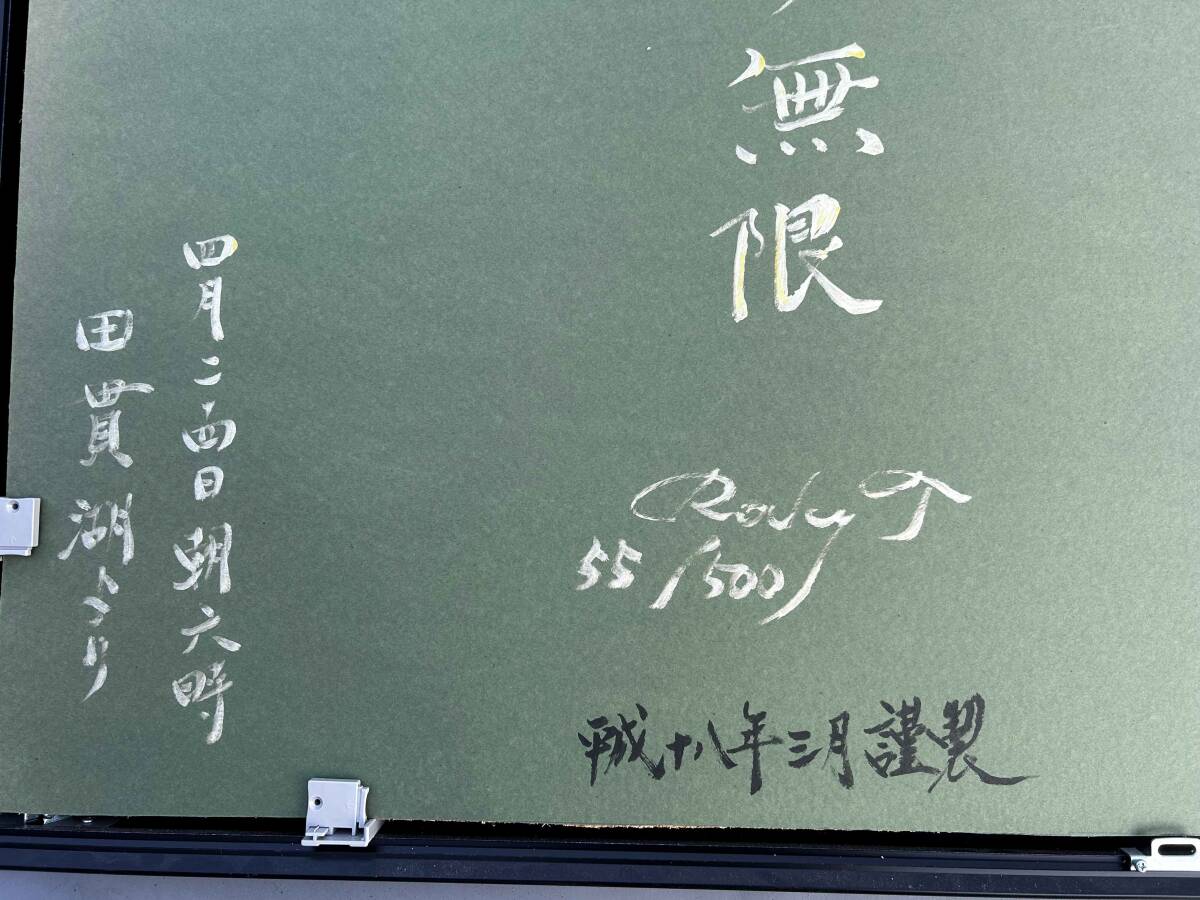 無限
四月二十四日朝六時
田貫湖より
55/500
平成十八年三月謹製